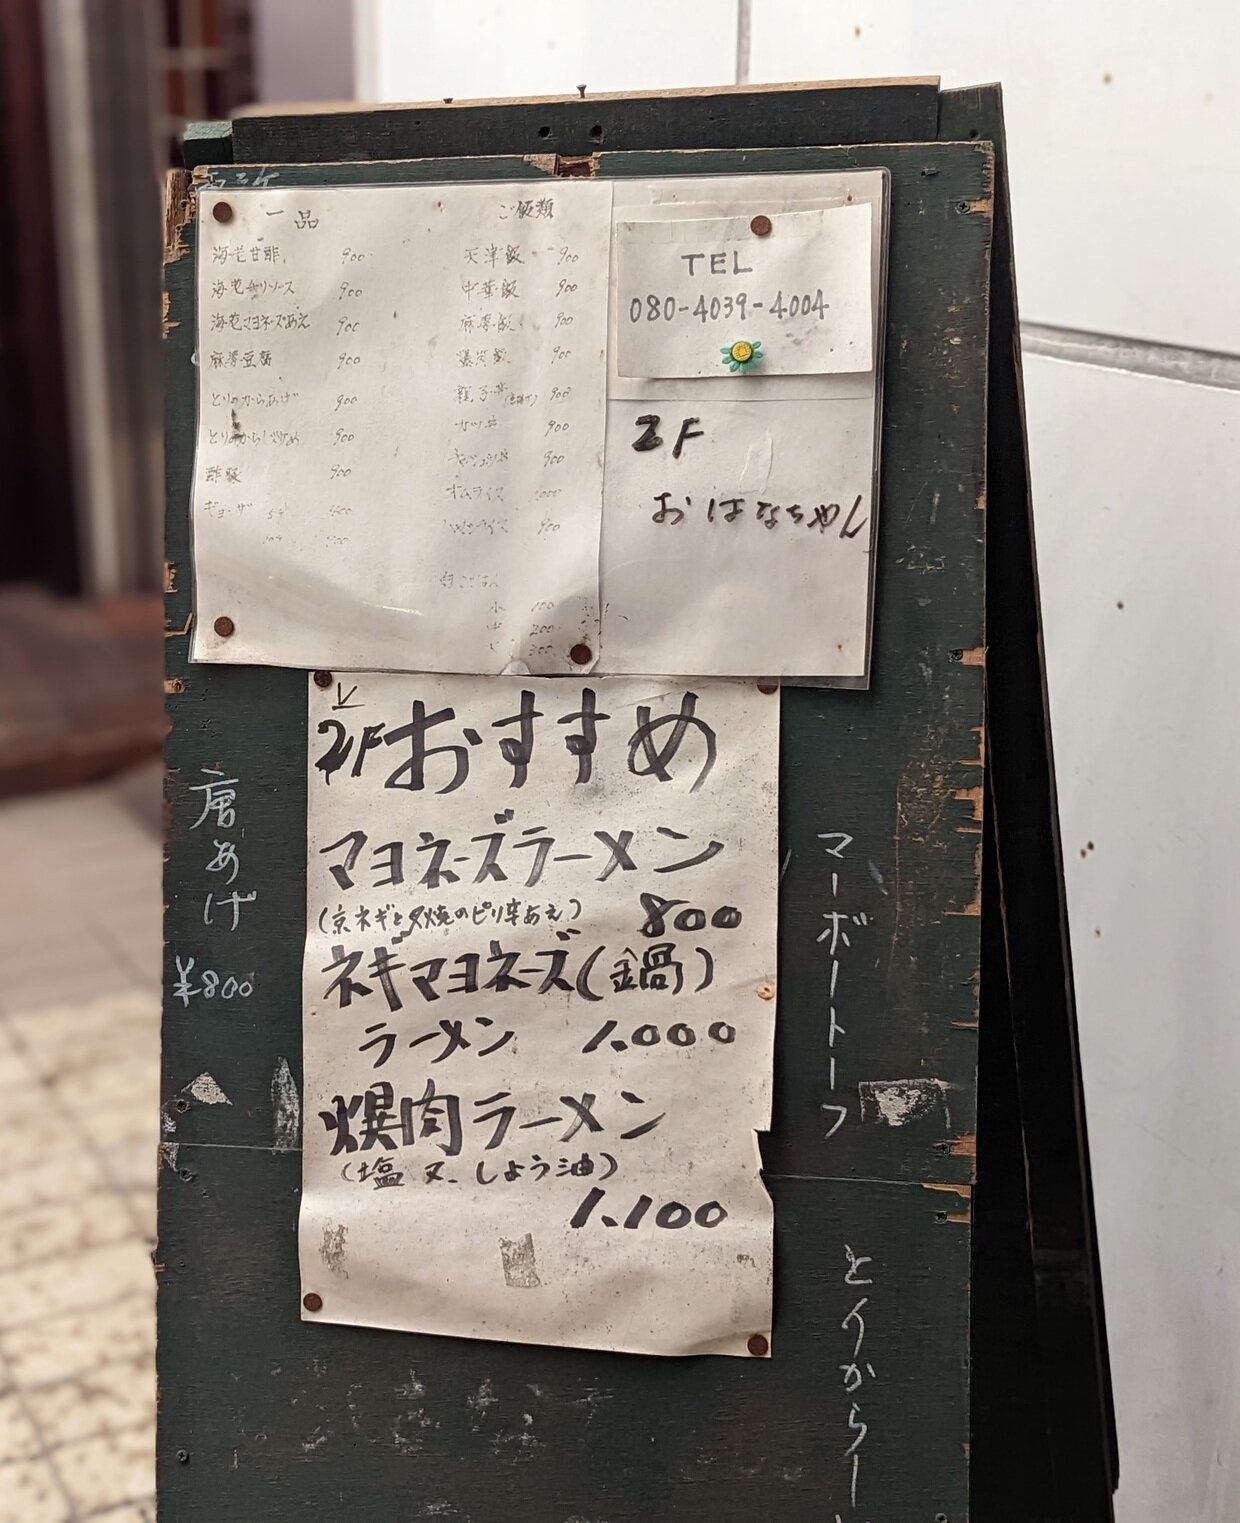 一品
海老甘酢 900
海老チリソース 900
海老マヨネーズあえ 900
麻婆豆腐 900
とりのからあげ 900
900
酢豚 900
ギョーザ
ご飯類
天津飯 900
中華飯 900
麻婆飯 900
爆肉飯 900
親子丼 900
カツ丼 900
900
オムライス
900
白ごはん
小 100
中 200
大 300
TEL
080-4039-4004
2F
おはなちゃん
2Fおすすめ
マヨネーズラーメン
(京ネギと叉焼のピリ辛あえ) 800
ネギマヨネーズ(鍋)
ラーメン 1.000
爆肉ラーメン
(塩 又、しょう油)
1.100
唐あげ
¥800
マーボートーフ
とりから